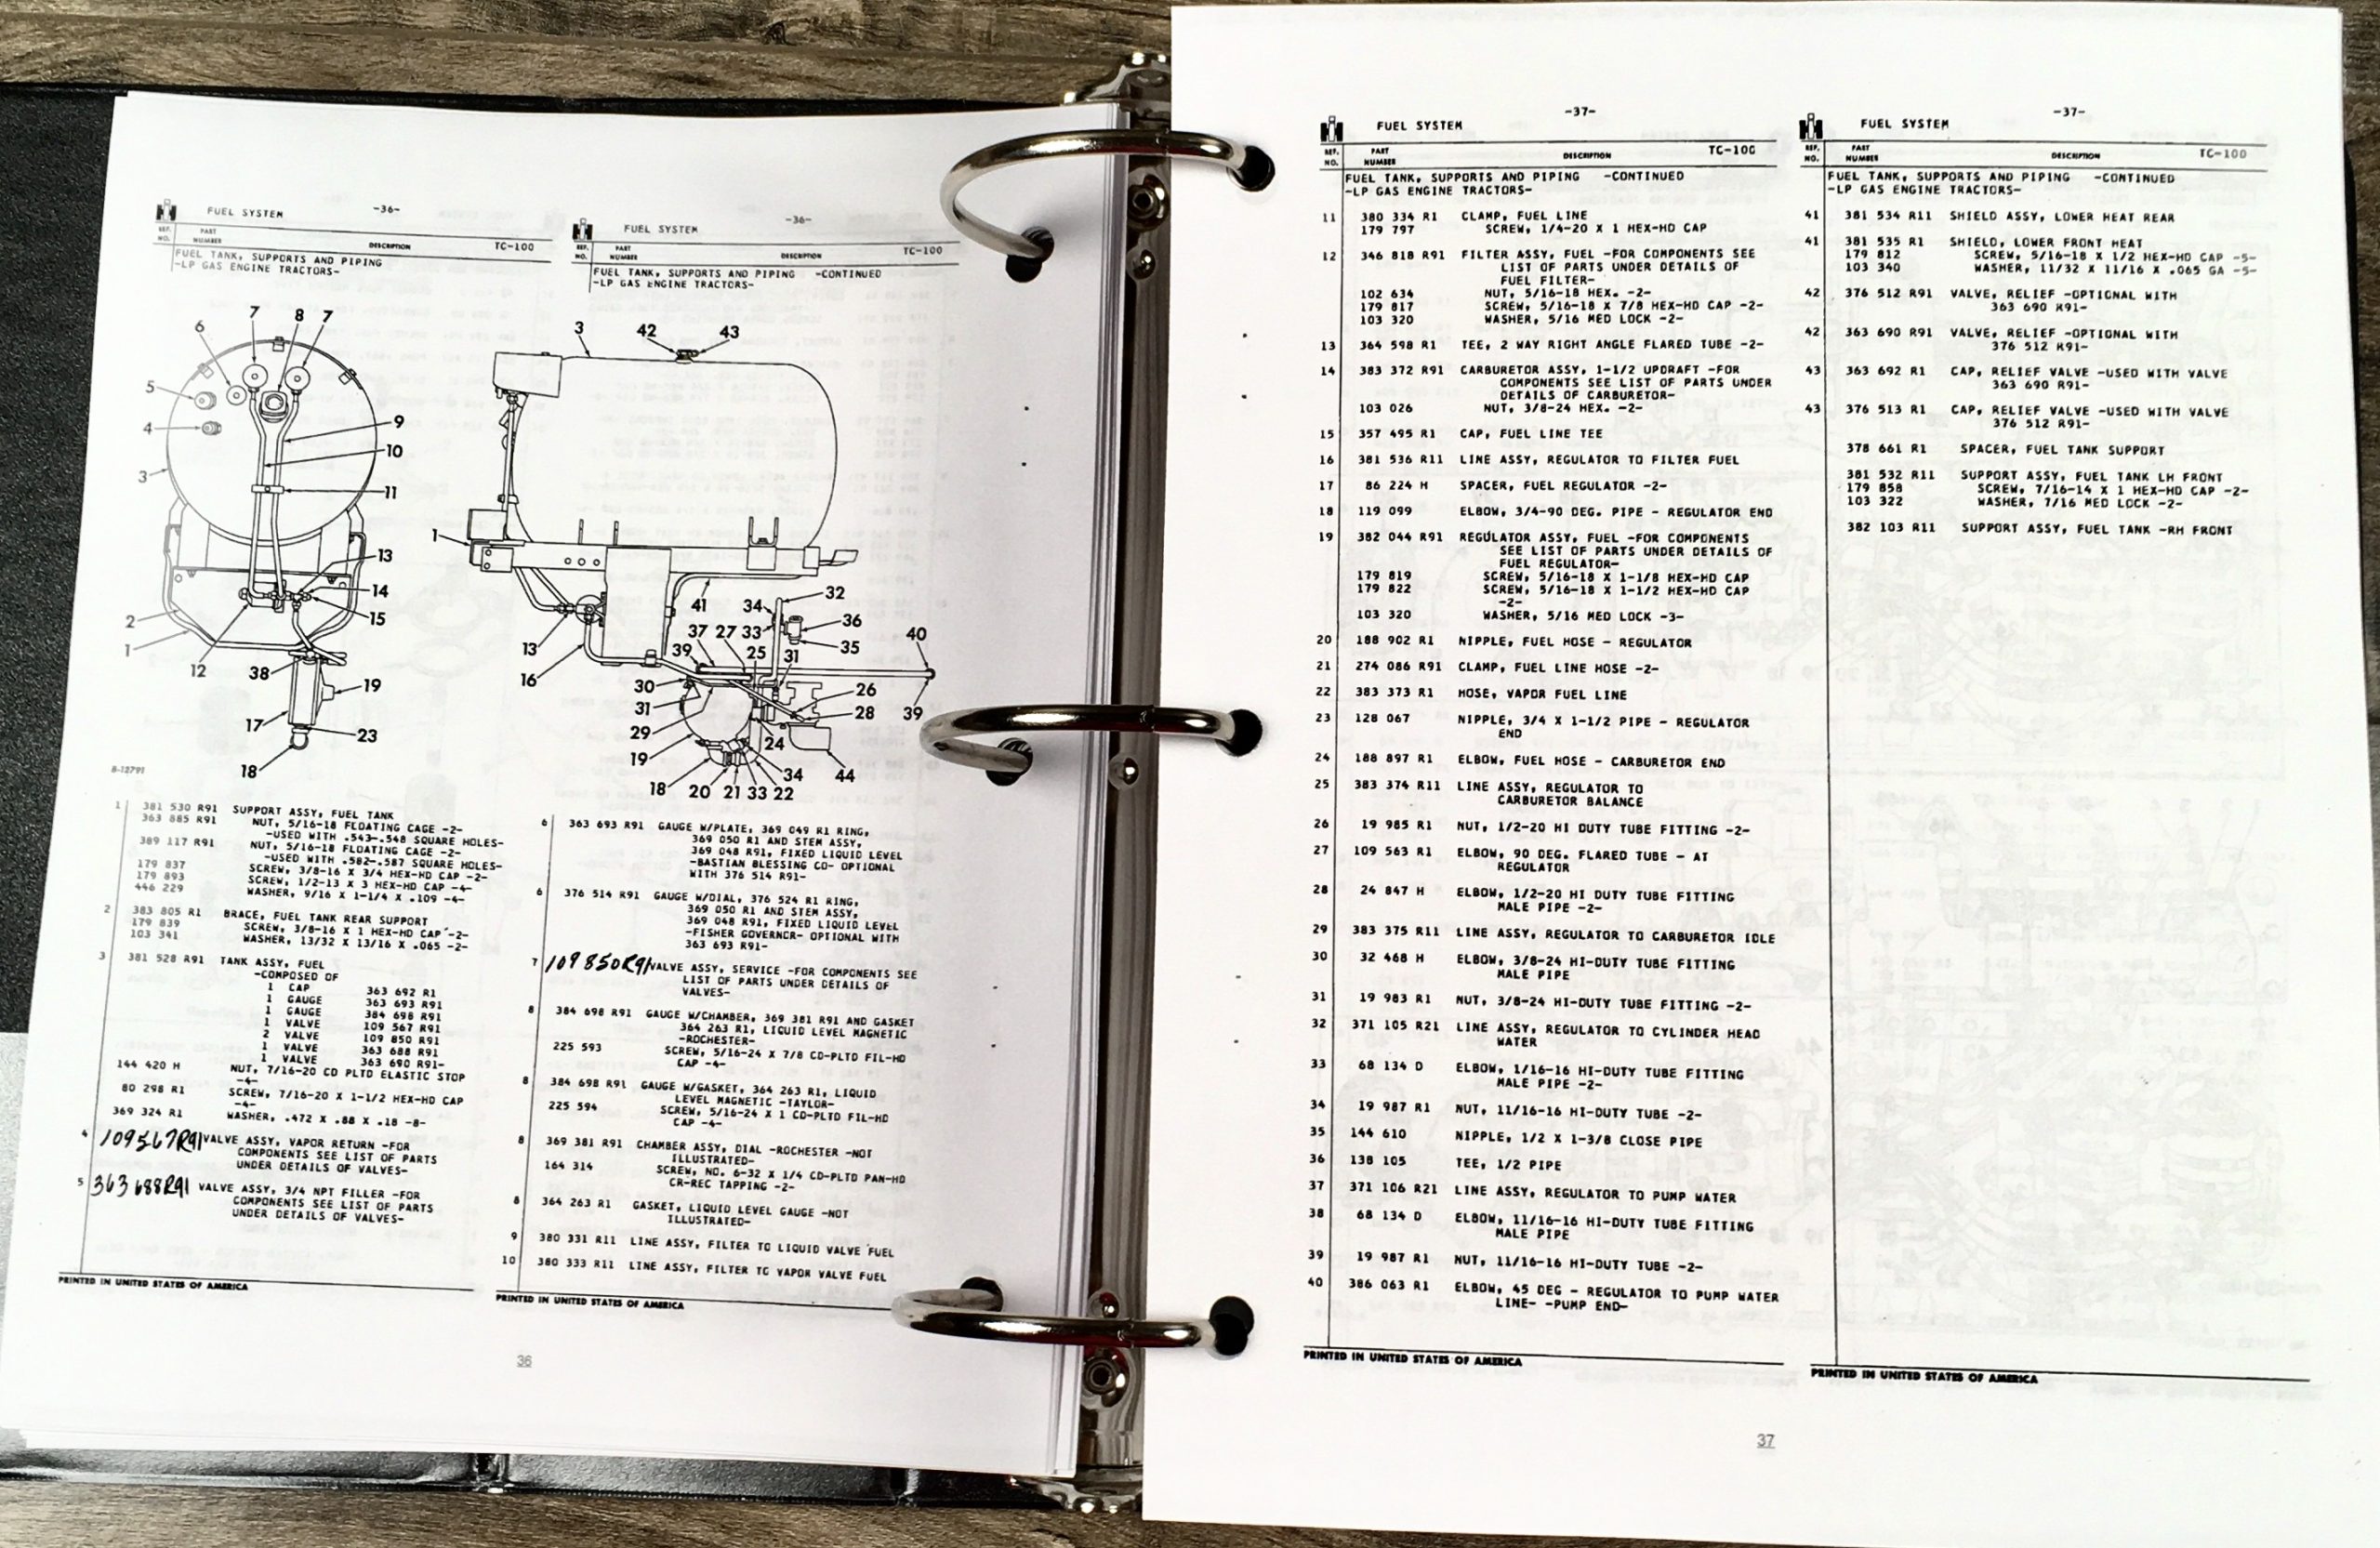 -36-
FUEL SYSTEM
REF. NO.
PART NUMBER
DESCRIPTION
TC-100
FUEL TANK, SUPPORTS AND PIPING
-LP GAS ENGINE TRACTORS-
7
8
7
6
5
4
3
9
10
11
13
14
15
2
1
12
38
19
17
23
18
B-12791
1 381 530 R91 SUPPORT ASSY, FUEL TANK
363 885 R91 NUT, 5/16-18 FLOATING CAGE -2-
-USED WITH .543-.548 SQUARE HOLES-
389 117 R91 NUT, 5/16-18 FLOATING CAGE -2-
-USED WITH .582-.587 SQUARE HOLES-
179 837 SCREW, 3/8-16 X 3/4 HEX-HD CAP -2-
179 893 SCREW, 1/2-13 X 3 HEX-HD CAP -4-
446 229 WASHER, 9/16 X 1-1/4 X .109 -4-
2 383 805 R1 BRACE, FUEL TANK REAR SUPPORT
179 839 SCREW, 3/8-16 X 1 HEX-HD CAP -2-
103 341 WASHER, 13/32 X 13/16 X .065 -2-
3 381 528 R91 TANK ASSY, FUEL
-COMPOSED OF
1 CAP 363 692 R1
1 GAUGE 363 693 R91
1 GAUGE 384 698 R91
1 VALVE 109 567 R91
2 VALVE 109 850 R91
1 VALVE 363 688 R91
1 VALVE 363 690 R91-
144 420 H NUT, 7/16-20 CD PLTD ELASTIC STOP
-4-
80 298 R1 SCREW, 7/16-20 X 1-1/2 HEX-HD CAP
-4-
369 324 R1 WASHER, .472 X .88 X .18 -8-
4 109567R91 VALVE ASSY, VAPOR RETURN -FOR
COMPONENTS SEE LIST OF PARTS
UNDER DETAILS OF VALVES-
5 363688R91 VALVE ASSY, 3/4 NPT FILLER -FOR
COMPONENTS SEE LIST OF PARTS
UNDER DETAILS OF VALVES-
PRINTED IN UNITED STATES OF AMERICA
-36-
FUEL SYSTEM
REF. NO.
PART NUMBER
DESCRIPTION
TC-100
FUEL TANK, SUPPORTS AND PIPING -CONTINUED
-LP GAS ENGINE TRACTORS-
3
42
43
1
41
34
32
36
35
13
39
37
27
33
25
31
40
16
30
26
31
28
39
29
24
19
34
44
18
20
21
33
22
6 363 693 R91 GAUGE W/PLATE, 369 049 R1 RING,
369 050 R1 AND STEM ASSY,
369 048 R91, FIXED LIQUID LEVEL
-BASTIAN BLESSING CO- OPTIONAL
WITH 376 514 R91-
6 376 514 R91 GAUGE W/DIAL, 376 524 R1 RING,
369 050 R1 AND STEM ASSY,
369 048 R91, FIXED LIQUID LEVEL
-FISHER GOVERNOR- OPTIONAL WITH
363 693 R91-
7 109850R91 VALVE ASSY, SERVICE -FOR COMPONENTS SEE
LIST OF PARTS UNDER DETAILS OF
VALVES-
8 384 698 R91 GAUGE W/CHAMBER, 369 381 R91 AND GASKET
364 263 R1, LIQUID LEVEL MAGNETIC
-ROCHESTER-
225 593 SCREW, 5/16-24 X 7/8 CD-PLTD FIL-HD
CAP -4-
8 384 698 R91 GAUGE W/GASKET, 364 263 R1, LIQUID
LEVEL MAGNETIC -TAYLOR-
225 594 SCREW, 5/16-24 X 1 CD-PLTD FIL-HD
CAP -4-
8 369 381 R91 CHAMBER ASSY, DIAL -ROCHESTER -NOT
ILLUSTRATED-
164 314 SCREW, NO. 6-32 X 1/4 CD-PLTD PAN-HD
CR-REC TAPPING -2-
8 364 263 R1 GASKET, LIQUID LEVEL GAUGE -NOT
ILLUSTRATED-
9 380 331 R11 LINE ASSY, FILTER TO LIQUID VALVE FUEL
10 380 333 R11 LINE ASSY, FILTER TO VAPOR VALVE FUEL
PRINTED IN UNITED STATES OF AMERICA
36
-37-
FUEL SYSTEM
REF. NO.
PART NUMBER
DESCRIPTION
TC-100
FUEL TANK, SUPPORTS AND PIPING -CONTINUED
-LP GAS ENGINE TRACTORS-
11 380 334 R1 CLAMP, FUEL LINE
179 797 SCREW, 1/4-20 X 1 HEX-HD CAP
12 346 818 R91 FILTER ASSY, FUEL -FOR COMPONENTS SEE
LIST OF PARTS UNDER DETAILS OF
FUEL FILTER-
102 634 NUT, 5/16-18 HEX. -2-
179 817 SCREW, 5/16-18 X 7/8 HEX-HD CAP -2-
103 320 WASHER, 5/16 MED LOCK -2-
13 364 598 R1 TEE, 2 WAY RIGHT ANGLE FLARED TUBE -2-
14 383 372 R91 CARBURETOR ASSY, 1-1/2 UPDRAFT -FOR
COMPONENTS SEE LIST OF PARTS UNDER
DETAILS OF CARBURETOR-
103 026 NUT, 3/8-24 HEX. -2-
15 357 495 R1 CAP, FUEL LINE TEE
16 381 536 R11 LINE ASSY, REGULATOR TO FILTER FUEL
17 86 224 H SPACER, FUEL REGULATOR -2-
18 119 099 ELBOW, 3/4-90 DEG. PIPE - REGULATOR END
19 382 044 R91 REGULATOR ASSY, FUEL -FOR COMPONENTS
SEE LIST OF PARTS UNDER DETAILS OF
FUEL REGULATOR-
179 819 SCREW, 5/16-18 X 1-1/8 HEX-HD CAP
179 822 SCREW, 5/16-18 X 1-1/2 HEX-HD CAP
-2-
103 320 WASHER, 5/16 MED LOCK -3-
20 188 902 R1 NIPPLE, FUEL HOSE - REGULATOR
21 274 086 R91 CLAMP, FUEL LINE HOSE -2-
22 383 373 R1 HOSE, VAPOR FUEL LINE
23 128 067 NIPPLE, 3/4 X 1-1/2 PIPE - REGULATOR
END
24 188 897 R1 ELBOW, FUEL HOSE - CARBURETOR END
25 383 374 R11 LINE ASSY, REGULATOR TO
CARBURETOR BALANCE
26 19 985 R1 NUT, 1/2-20 HI DUTY TUBE FITTING -2-
27 109 563 R1 ELBOW, 90 DEG. FLARED TUBE - AT
REGULATOR
28 24 847 H ELBOW, 1/2-20 HI DUTY TUBE FITTING
MALE PIPE -2-
29 383 375 R11 LINE ASSY, REGULATOR TO CARBURETOR IDLE
30 32 468 H ELBOW, 3/8-24 HI-DUTY TUBE FITTING
MALE PIPE
31 19 983 R1 NUT, 3/8-24 HI-DUTY TUBE FITTING -2-
32 371 105 R21 LINE ASSY, REGULATOR TO CYLINDER HEAD
WATER
33 68 134 D ELBOW, 1/16-16 HI-DUTY TUBE FITTING
MALE PIPE -2-
34 19 987 R1 NUT, 11/16-16 HI-DUTY TUBE -2-
35 144 610 NIPPLE, 1/2 X 1-3/8 CLOSE PIPE
36 138 105 TEE, 1/2 PIPE
37 371 106 R21 LINE ASSY, REGULATOR TO PUMP WATER
38 68 134 D ELBOW, 11/16-16 HI-DUTY TUBE FITTING
MALE PIPE
39 19 987 R1 NUT, 11/16-16 HI-DUTY TUBE -2-
40 386 063 R1 ELBOW, 45 DEG - REGULATOR TO PUMP WATER
LINE- -PUMP END-
PRINTED IN UNITED STATES OF AMERICA
-37-
FUEL SYSTEM
REF. NO.
PART NUMBER
DESCRIPTION
TC-100
FUEL TANK, SUPPORTS AND PIPING -CONTINUED
-LP GAS ENGINE TRACTORS-
41 381 534 R11 SHIELD ASSY, LOWER HEAT REAR
41 381 535 R1 SHIELD, LOWER FRONT HEAT
179 812 SCREW, 5/16-18 X 1/2 HEX-HD CAP -5-
103 340 WASHER, 11/32 X 11/16 X .065 GA -5-
42 376 512 R91 VALVE, RELIEF -OPTIONAL WITH
363 690 R91-
42 363 690 R91 VALVE, RELIEF -OPTIONAL WITH
376 512 R91-
43 363 692 R1 CAP, RELIEF VALVE -USED WITH VALVE
363 690 R91-
43 376 513 R1 CAP, RELIEF VALVE -USED WITH VALVE
376 512 R91-
378 661 R1 SPACER, FUEL TANK SUPPORT
381 532 R11 SUPPORT ASSY, FUEL TANK LH FRONT
179 858 SCREW, 7/16-14 X 1 HEX-HD CAP -2-
103 322 WASHER, 7/16 MED LOCK -2-
382 103 R11 SUPPORT ASSY, FUEL TANK -RH FRONT
PRINTED IN UNITED STATES OF AMERICA
37